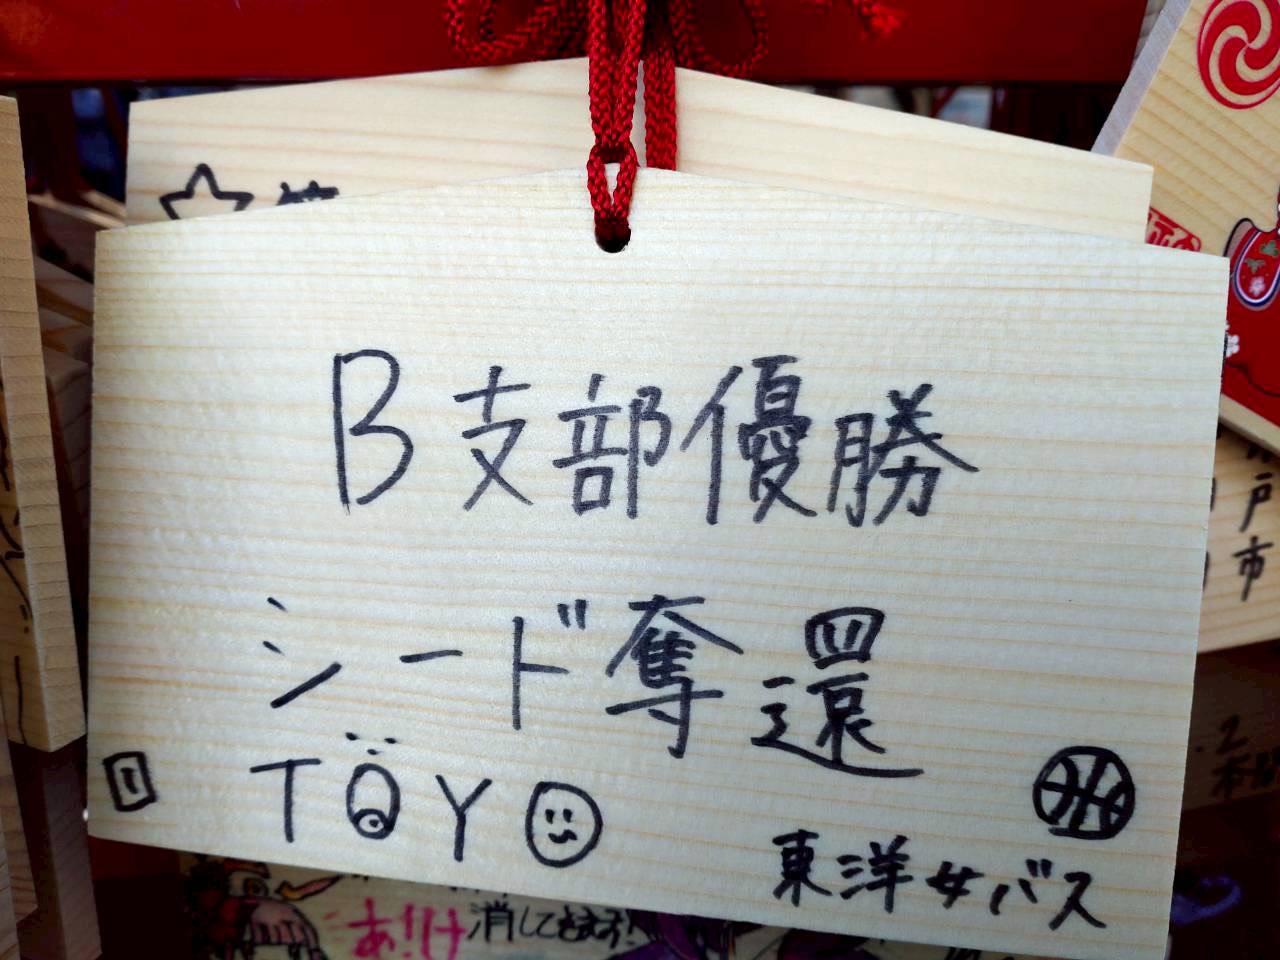 B支部優勝
シード奪還
TOYO
東洋女バス
戸市
あ!け 消してきます!